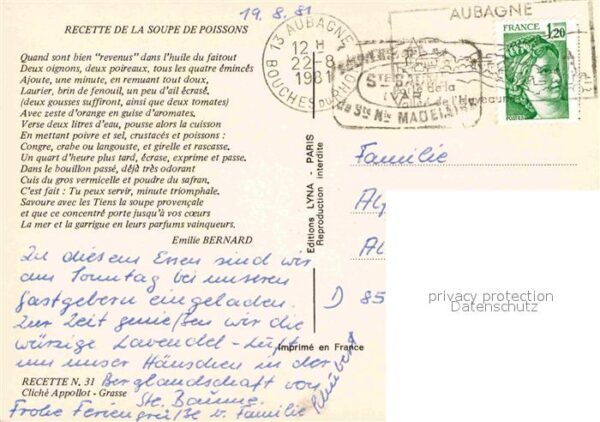 19.8.81
RECETTE DE LA SOUPE DE POISSONS
Quand sont bien "revenus" dans l'huile du faitout
Deux oignons, deux poireaux, tous les quatre émincés
Ajoute, une minute, en remuant tout doux,
Laurier, brin de fenouil, un peu d'ail écrasé.
(deux gousses suffiront, ainsi que deux tomates)
Avec zeste d'orange en guise d'aromates.
Verse deux litres d'eau, pousse alors la cuisson
En mettant poivre et sel, crustacés et poissons :
Congre, crabe ou langouste, et girelle et rascasse.
Un quart d'heure plus tard, écrase, exprime et passe.
Dans le bouillon passé, déjà très odorant
Cuis du gros vermicelle et poudre du safran.
C'est fait : Tu peux servir, minute triomphale.
Savoure avec les Tiens la soupe provençale
et que ce concentré porte jusqu'à vos cœurs
La mer et la garrigue en leurs parfums vainqueurs.
Emilie BERNARD
Zu diesem Essen sind wir
am Sonntag bei unseren
Gastgebern eingeladen.
Zur Zeit genießen wir die
würzige Lavendel-Luft
um unser Häuschen in der
Berglandschaft von
Ste. Baume.
Frohe Feriengrüße v. Familie
RECETTE N. 31
Cliché Appollot - Grasse
Editions LYNA - PARIS
Reproduction interdite
Imprimé en France
13 AUBAGNE
12 H
22-8
1981
BOUCHES DU RHONE
AUBAGNE
Ste BAUME
(VAR)
de Ste Mie MADELEINE
FRANCE
1,20
POSTES
Familie
D 85
privacy protection
Datenschutz